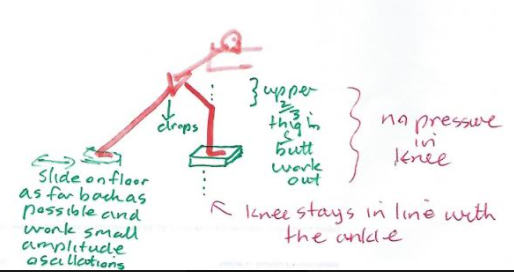 drops
upper
2/3
thigh
&
butt
work
out
no pressure
in
knee
Slide on floor
as far back as
possible and
work small
amplitude
oscillations
knee stays in line with
the ankle